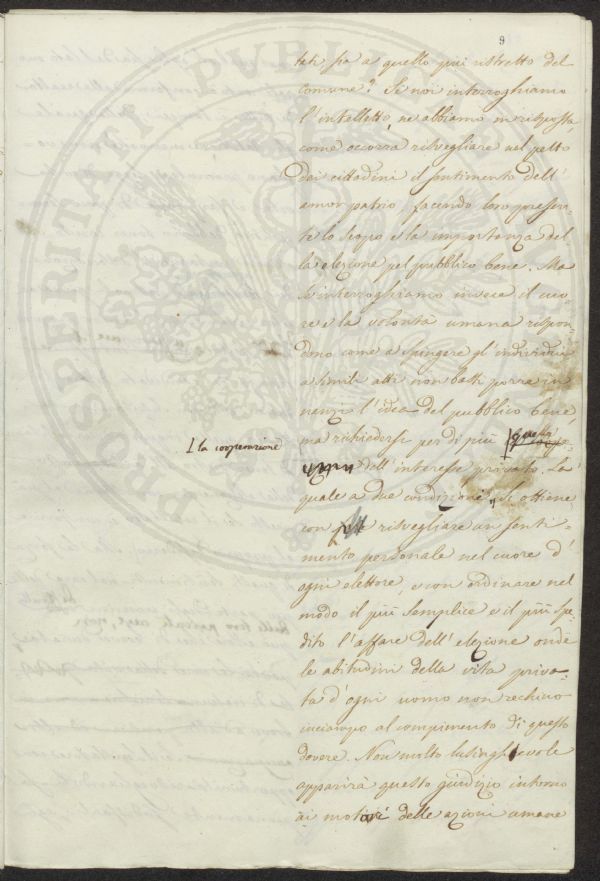 9
teti, sia a quello piu ristretto del
comune? Se noi interroghiamo
l'intelletto, ne abbiamo in risposta
come occorra risvegliare nel petto
dei cittadini il sentimento dell'
amor patrio, facendo loro presen-
te lo scopo e la importanza del
la elezione pel pubblico bene. Ma
se interroghiamo invece il cuo
re e la volontà umana rispon-
dono come a spingere gl'individui
a simili atti non basti porre in
nanzi l'idea del pubblico bene,
ma richiedersi per di più
la cooperazione
dell'interesse privato. La
quale a due condizioni, si ottiene
con risvegliare un senti-
mento personale nel cuore d'
ogni elettore, e con ordinare nel
modo il più semplice e il più spe
dito l'affare dell'elezione onde
le abitudini della vita priva-
ta d'ogni uomo non rechino
inciampo al compimento di questo
dovere. Non molto lusinghevole
apparirà questo giudizio intorno
ai motivi delle azioni umane
PROSPERITATI PUBLICAE